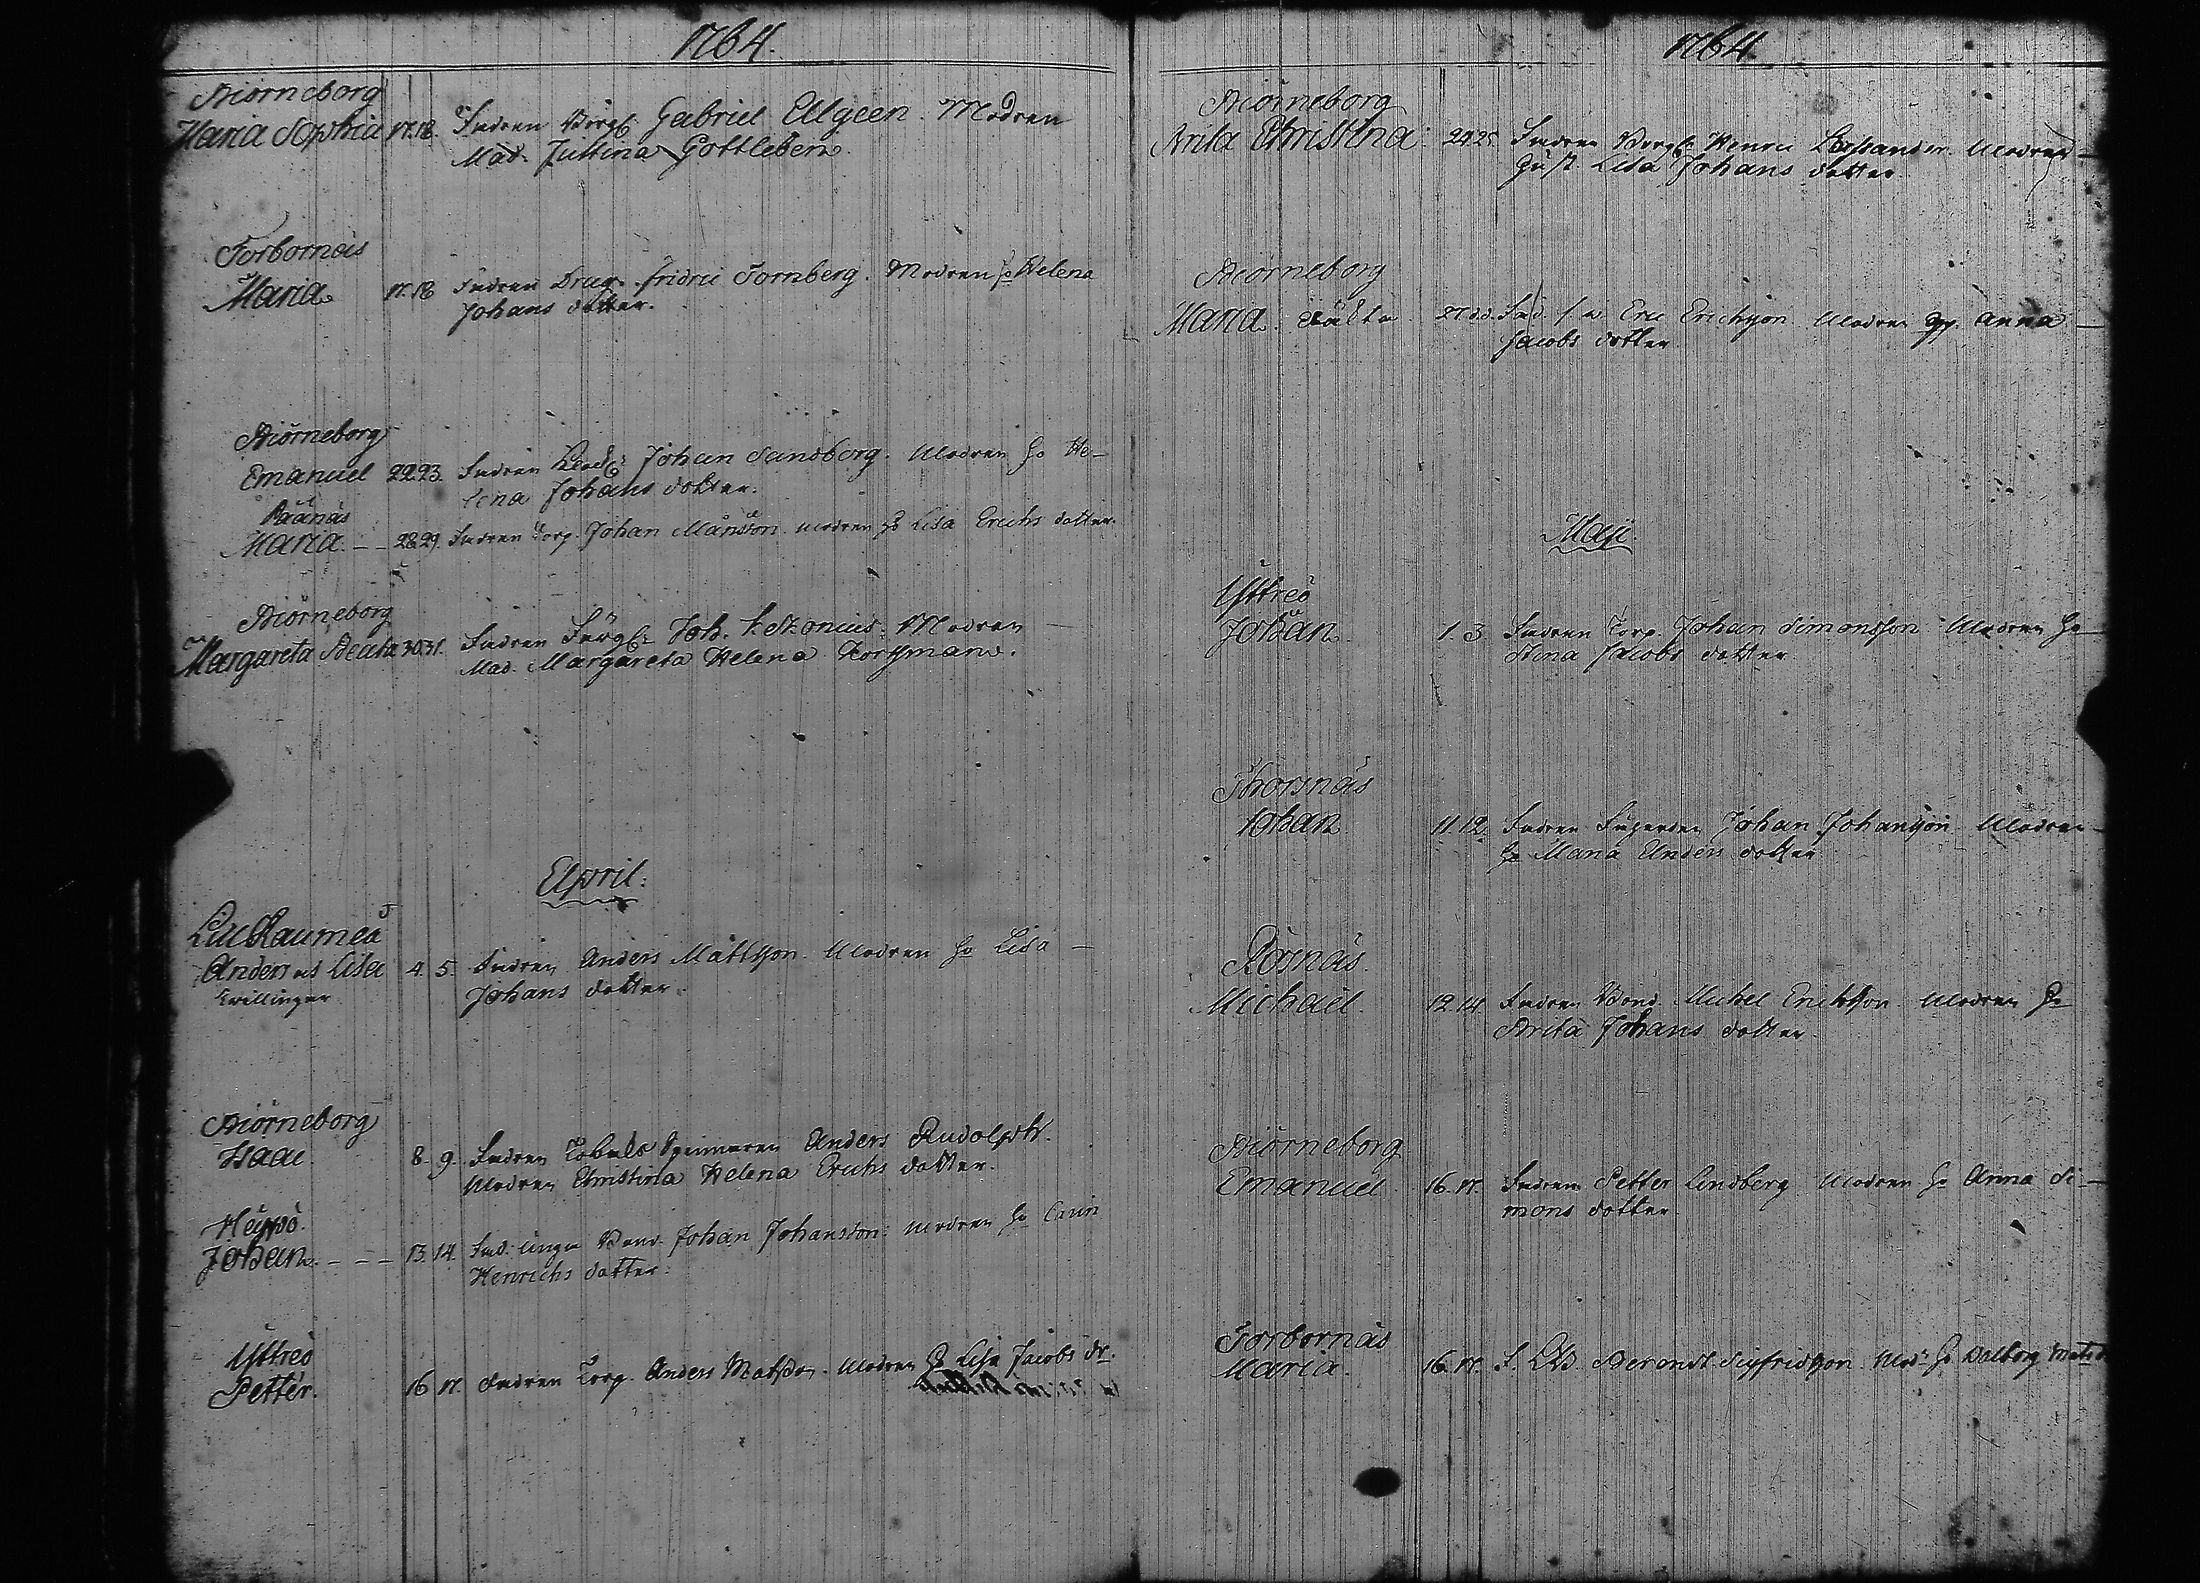 1764.
Biörneborg
Maria Sophia 17. 18. Fadren Borg. Gabriel Ellgeen. Modren
Mad. Justina Gottleben.
Torbornäs
Maria 17. 18 Fadren Drag. Fridric Tornberg. Modren h: Helena
Johans dotter.
Biörneborg
Emanuel 22. 23. Fadren Johan Sandberg. Modren h: He-
lena Johans dotter.
Påånäs
Maria. — — 28. 29. Fadren Torp. Johan Månsson. modren h: Lisa Erichs dotter.
Biörneborg
Margareta Beata 30. 31. Fadren Joh. Modren —
Mad. Margareta Helena
April.
Lill Raumeå
Anders et Lisa 4. 5. Fadren Anders Mattsson. Modren h: Lisa —
Tvillingar Johans dotter.
Biörneborg
Isaac. 8. 9. Fadren Tobaks Spinnaren Anders Rudolph.
Modren Christina Helena Erichs dotter.
Heijsö.
Johan. — — — 13. 14. Fad. unga Bond. Johan Johansson. modren h: Carin
Henrichs dotter.
Ytterö
Petter. 16. 17. Fadren Torp. Anders Matsson. Modren h: Lisa Jacobs dr.
1764.
Biörneborg
Anita Christina. 24. 25. Fadren Borg. Henric Modren —
Hust. Lisa Johans dotter.
Biörneborg
Maria. oäkta 27. dd. Fad. Eric Erichsson Modren Anna —
Jacobs dotter
Maji.
Ytterö
Johan. 1. 3. Fadren Torp. Johan Simonsson Modren h:
Stina Jacobs dotter.
Thorsnäs
Johan 11. 12. Fadren Johan Johansson Modren —
h: Maria Anders dotter
Rosnäs.
Michael. 12. 14. Fadren Bond. Michel Ericksson Modren h:
Brita Johans dotter.
Biörneborg
Emanuel 16. 17. Fadren Petter Lindberg Modren h: Anna Si-
mons dotter.
Torbornäs
Maria. 16. 17. F. Berendt Sigfridsson. Mod: h: Valborg Mats d